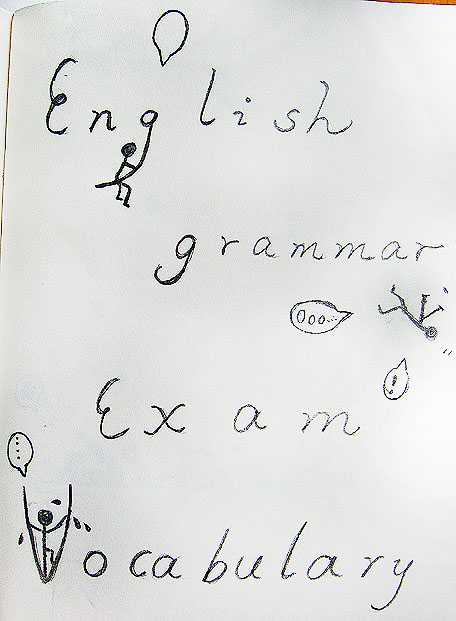 English
grammar
Ooo...
!
Exam
....
Vocabulary